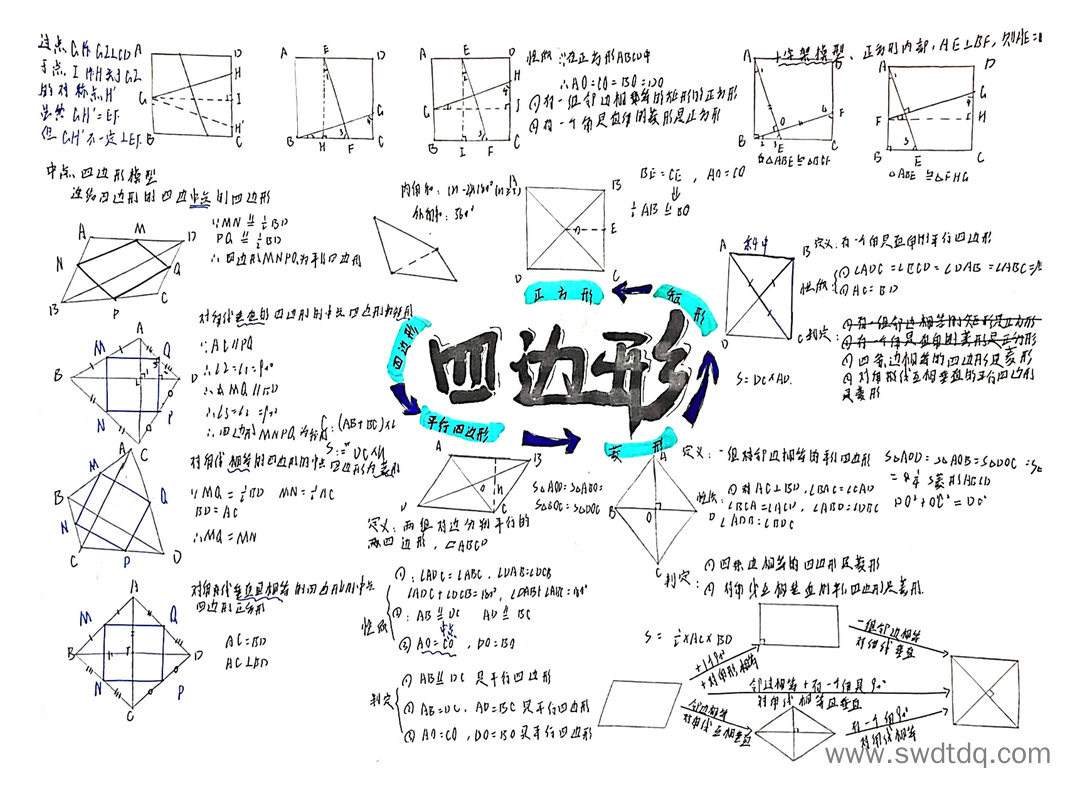 过点G作GI⊥CD
于点I 作H关于GI
的对称点H'
虽然GH'=EF
但GH'不一定⊥EF.
A
D
H
G
I
H'
B
C
A
E
D
G
B
H
F
C
A
E
D
H
G
I
B
I
F
C
性质:在正方形ABCD中
∴AO=CO=BO=DO
①有一组邻边相等的矩形的正方形
②有一个角是直角的菱形是正方形
十字架模型,正方形内部,AE⊥BF,则AE=
A
D
O
F
B
E
C
△ABE≌△BCF
A
D
G
F
H
B
E
C
△ABE≌△FHG
中点四边形模型
连结四边形的四边中点的四边形
A
M
D
N
Q
B
P
C
∵MN ∥= ½BD
PQ ∥= ½BD
∴四边形MNPQ为平行四边形
内角和:(n-2)180°(n≥3)
外角和:360°
A
B
E
D
C
BE=CE, AO=CO
⇓
½AB ∥= EO
A
B
D
定义:有一个角是直角的平行四边形
性质
①∠ADC=∠BCD=∠DAB=∠ABC=
②AC=BD
判定:
①有一组邻边相等的矩形是正方形
②有一个角是直角的菱形是正方形
③四条边相等的四边形是菱形
④对角线互相垂直的平行四边形
是菱形
S=DC×AD.
正方形
矩形
四边形
四边形
平行四边形
菱形
对角线垂直的四边形的中点四边形为矩形
∵AC∥PQ
A
M
Q
B
D
N
P
C
∴四边形MNPQ为矩形
C:(AB+BC)×2
S:DC×h
对角线相等的四边形的中点四边形为菱形
∵MQ=½BD MN=½AC
BD=AC
∴MQ=MN
A
M
B
Q
N
C
P
D
对角线垂直且相等的四边形的中点
四边形正方形
AC=BD
AC⊥BD
A
M
Q
B
D
N
P
C
A
B
O
h
D
C
S△AOD=S△ABO=
S△BOC=S△DOC
定义:两组对边分别平行的
四边形,▱ABCD
性质
①:∠ADC=∠ABC,∠DAB=∠DCB
∠ADC+∠DCB=180°,∠DAB+∠ABC=180°
②:AB ∥= DC AD ∥= BC
中点
③AO=CO,DO=BO
判定
①AB ∥= DC 是平行四边形
②AB=DC,AD=BC是平行四边形
③AO=CO,DO=BO是平行四边形
定义:一组对邻边相等的平行四边形
A
B
O
D
C
性质:①对AC⊥BD,∠BAC=∠CAD
∠BCA=∠ACD,∠ABD=∠DBC
∠ADB=∠BDC
S△AOD=S△AOB=S△DOC=
=¼S菱形ABCD
DO²+OC²=DC²
判定:
①四条边相等的四边形是菱形
②对角线互相垂直的平行四边形是菱形.
S=½×AC×BD
+1个90°
+对角形相等
一组邻边相等
对角线垂直
邻边相等+有一个角是90°
对角线相等且垂直
邻边相等
对角线互相垂直
有一个角90°
对角线相等
www.swdtdq.com